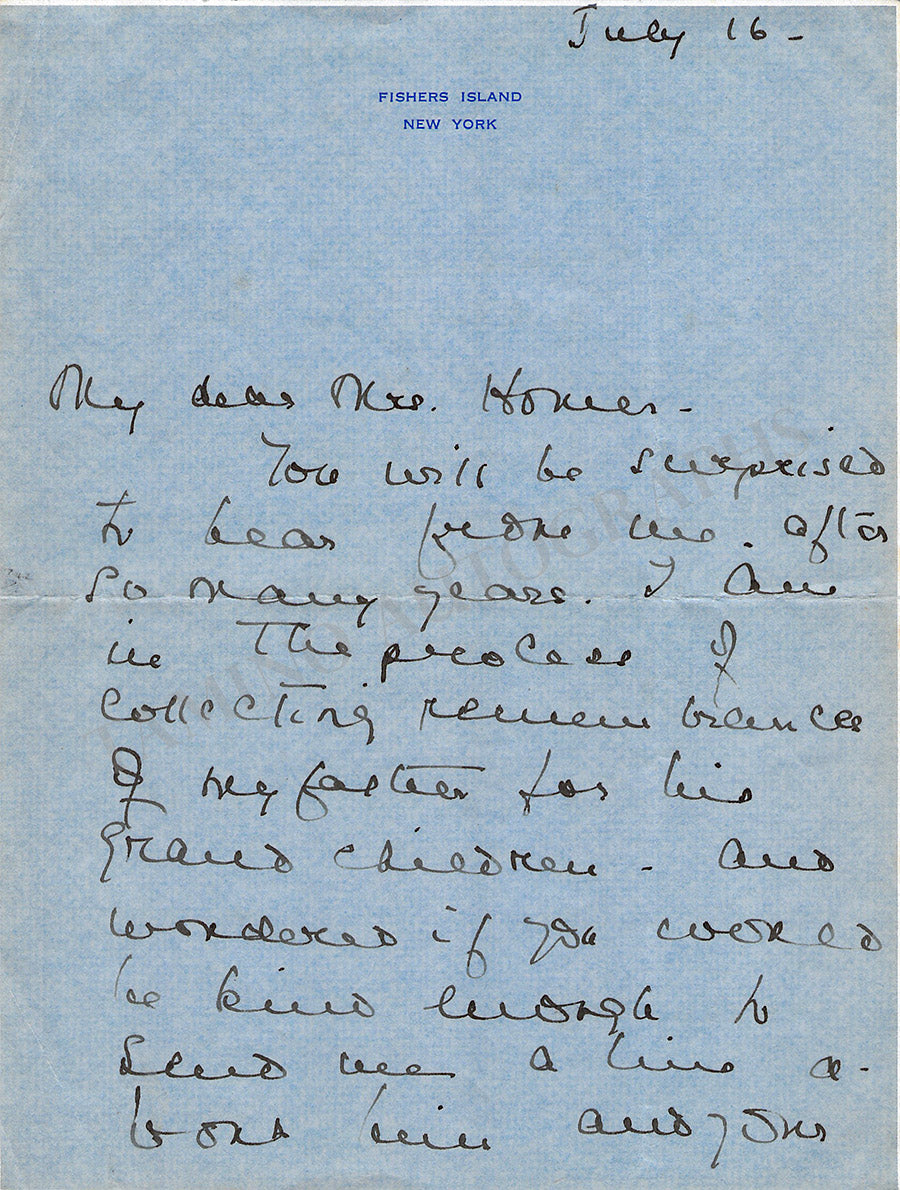 July 16 -
FISHERS ISLAND
NEW YORK
My dear Mrs. Homer -
You will be surprised
to hear from me. after
so many years. I am
in the process of
collecting remembrances
of my father for his
grand children - and
wondered if you would
be kind enough to
send me a line a-
bout him and your